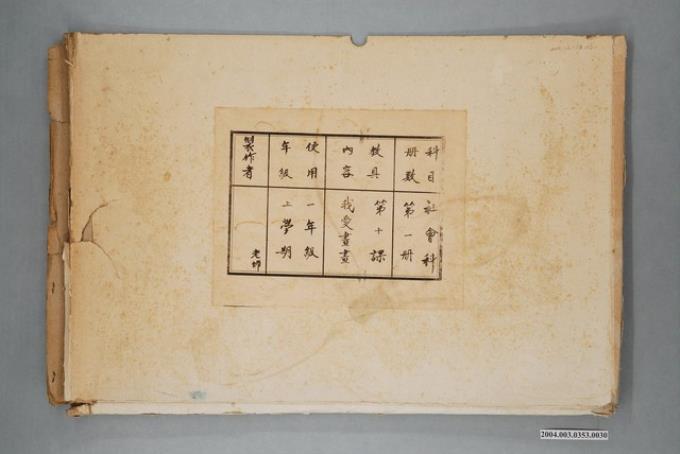 科目 社會科
冊數 第一冊
教具 第十課
內容 我愛畫畫
使用 一年級
年級 上學期
製作者 老師
2004.003.0353.0030